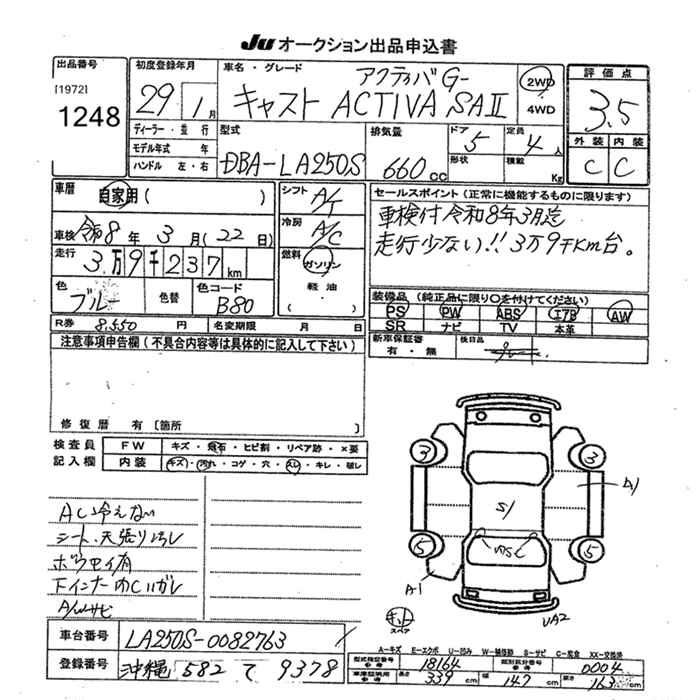 JU オークション出品申込書
出品番号
[1972]
1248
初度登録年月
29 1月
車名・グレード
アクティバG
キャスト ACTIVA SAⅡ
2WD
4WD
評価点
3.5
外装 内装
C C
ディーラー・並行
モデル年式 年
ハンドル 左・右
型式
DBA-LA250S
排気量
660cc
ドア 5
形状
定員 4人
積載 Kg
車歴
自家用( )
車検 令和8年3月(22日)
走行
3万9千237km
色
ブルー
色替
色コード
B80
シフト
A/T
冷房
A/C
燃料
ガソリン
軽油
セールスポイント(正常に機能するものに限ります)
車検付令和8年3月迄
走行少ない!!3万9千Km台。
装備品(純正品に限り○を付けてください)
PS PW ABS エアB AW
SR ナビ TV 本革
R券 8,550円
名変期限 月 日
新車保証書
有・無
後日品
注意事項申告欄(不具合内容等は具体的に記入して下さい)
修復歴 有〔箇所
検査員
記入欄
FW キズ・飛石・ヒビ割・リペア跡・×要
内装 キズ・汚れ・コゲ・穴・スレ・キレ・破レ
AC冷えない
シート、天張り汚レ
3 3
5 5
S1
A1
UA2
スペア
車台番号 LA250S-0082763
登録番号 沖縄 582 て 9378
A-キズ E-エクボ U-凹み W-補修跡 S-サビ C-腐食 XX-交換済
型式指定番号 18164
類別区分番号 0004
長さ 339cm
幅 147cm
高さ 163cm